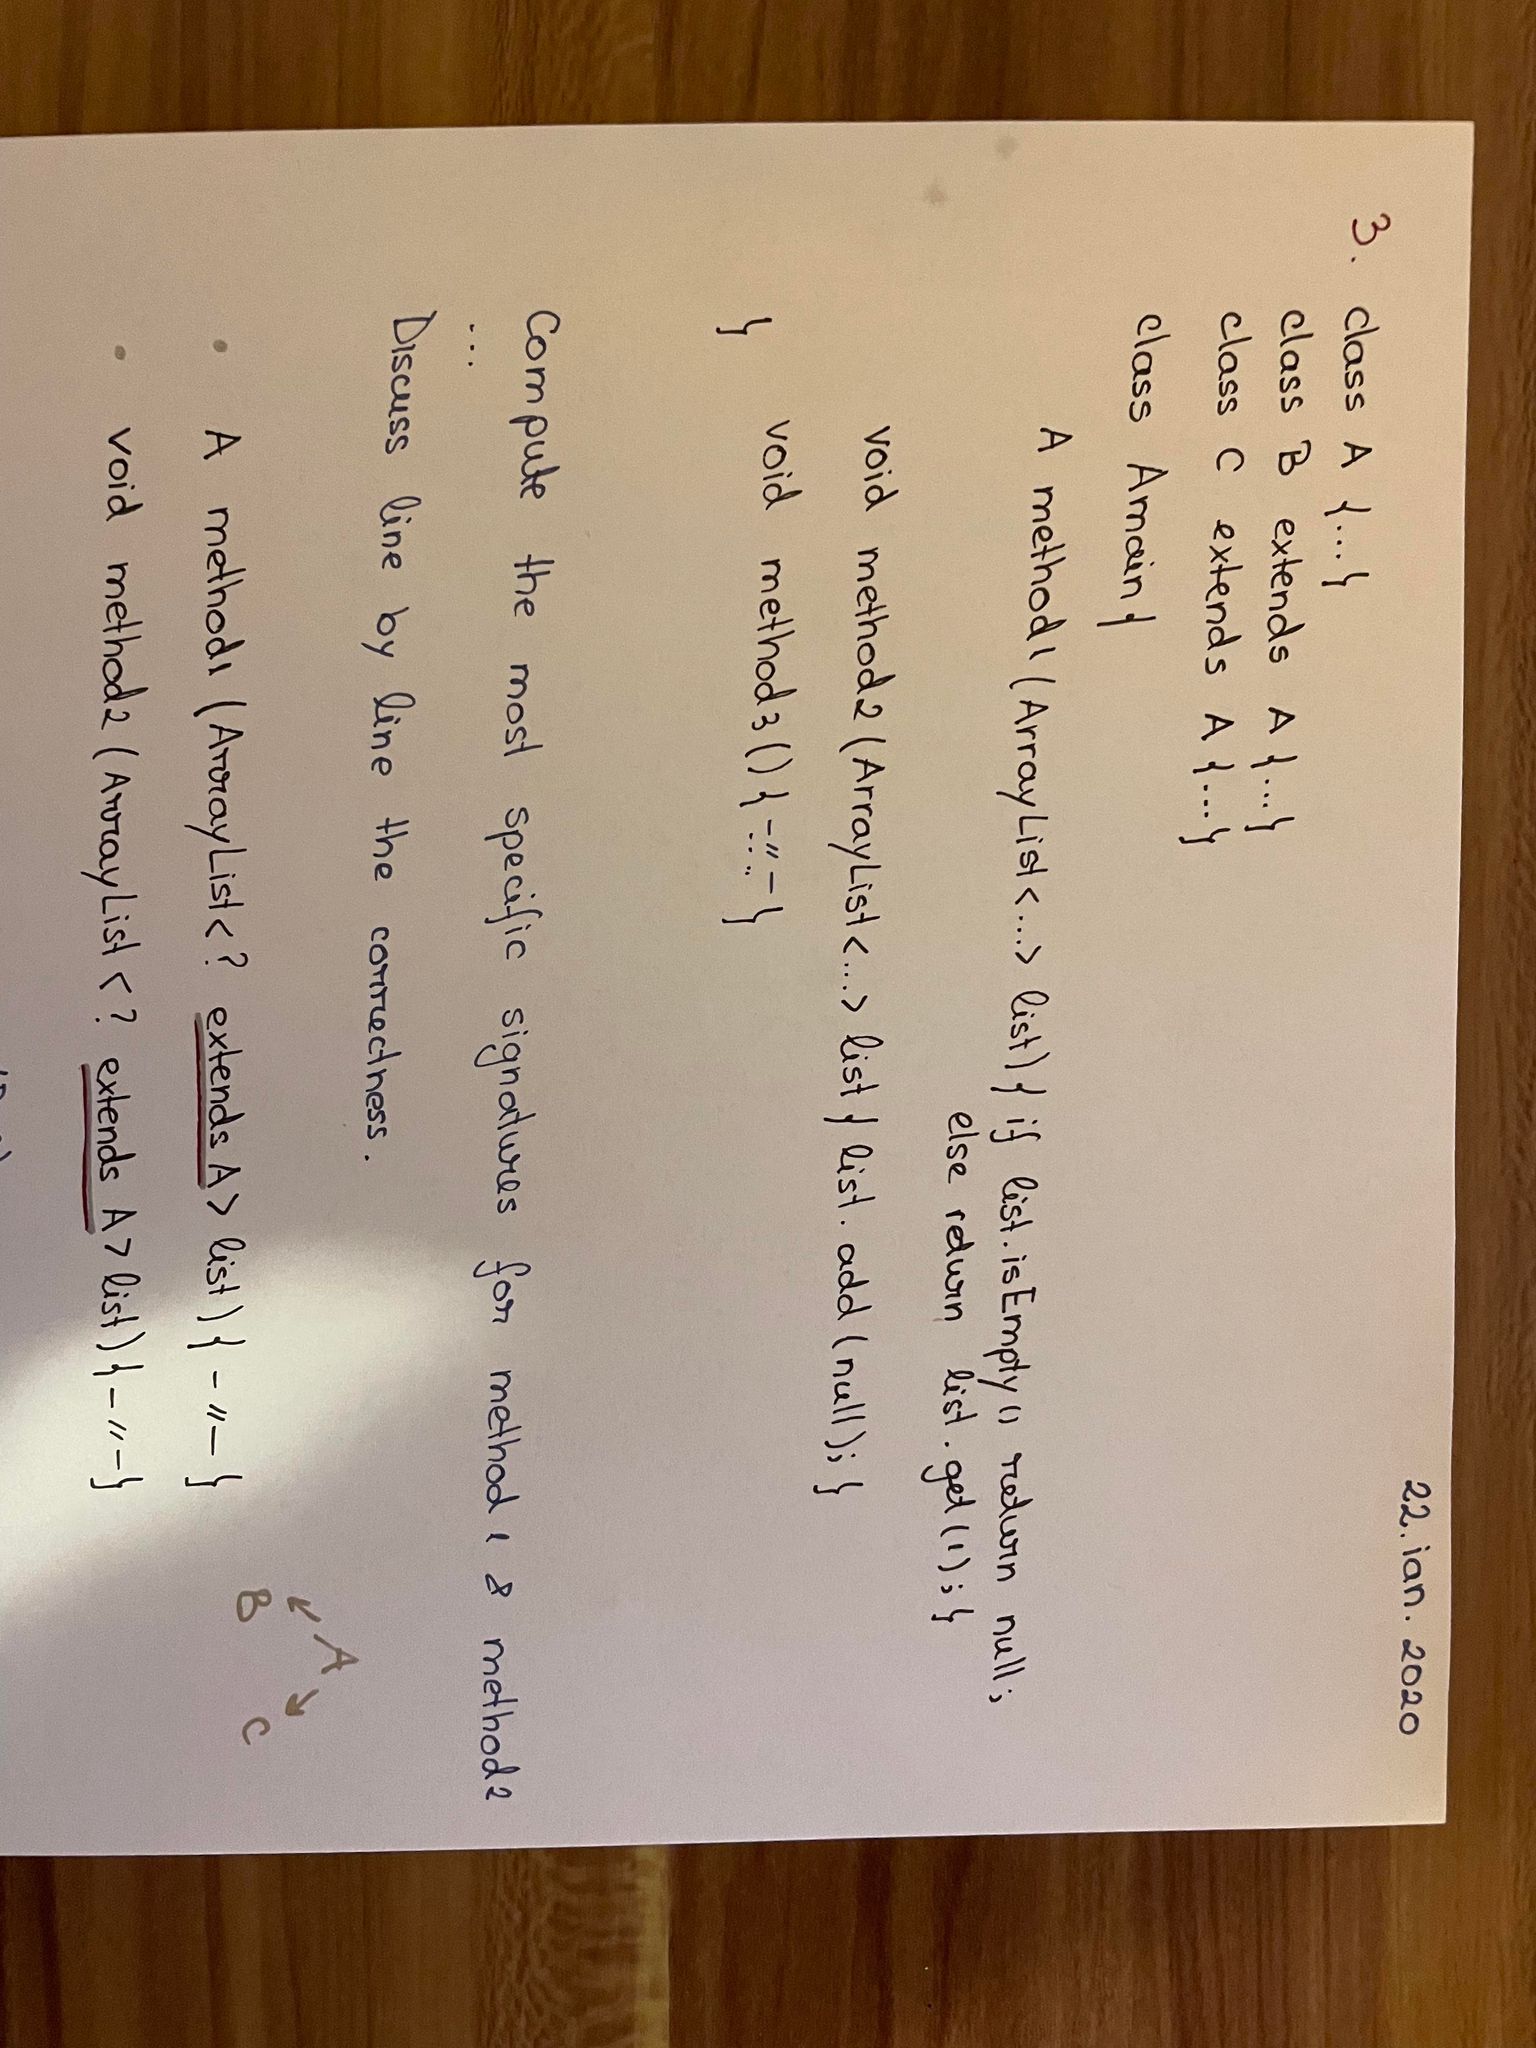 22. ian. 2020
3. class A {...}
class B extends A {...}
class C extends A {...}
class Amain {
A method1 (ArrayList<...> list) { if list.isEmpty() return null;
else return list.get(1); }
void method2 (ArrayList<...> list { list.add(null); }
void method3 () { -"- }
}
Compute the most specific signatures for method1 & method2
...
Discuss line by line the correctness.
A
B C
• A method1 (ArrayList<? extends A> list) { -"- }
• void method2 (ArrayList<? extends A> list) { -"- }